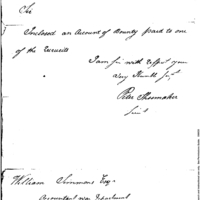 Sir
Inclosed an Account of Bounty paid to one
of the Recruits
I am Sir with respt your
very Humbl Sert
Peter Shoemaker
Lieut
William Simmons Esqr
Accountant War Department